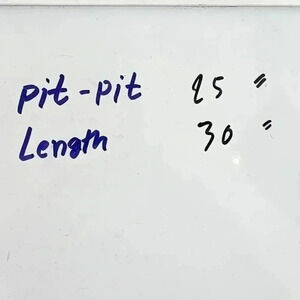 pit-pit 25 "
Length 30 "